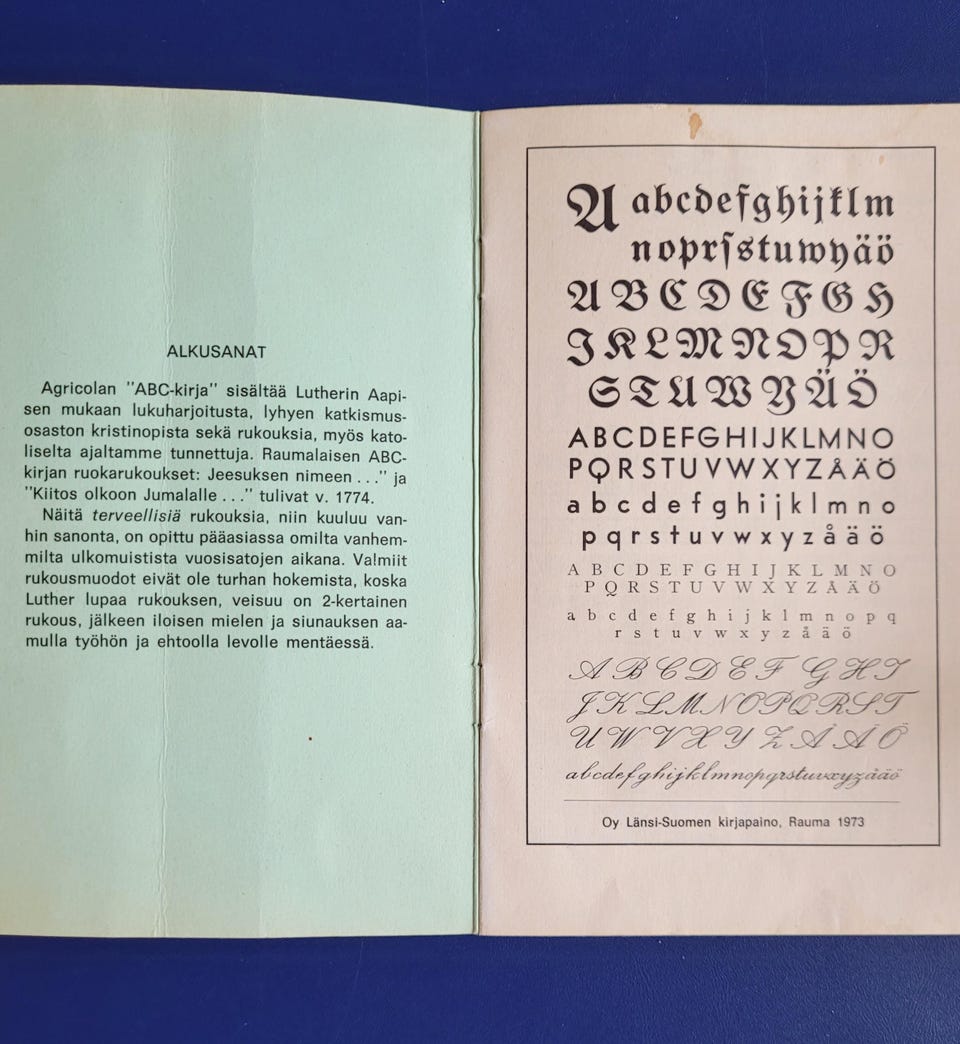 ALKUSANAT
Agricolan "ABC-kirja" sisältää Lutherin Aapi-
sen mukaan lukuharjoitusta, lyhyen katkismus-
osaston kristinopista sekä rukouksia, myös kato-
liselta ajaltamme tunnettuja. Raumalaisen ABC-
kirjan ruokarukoukset: Jeesuksen nimeen . . ." ja
"Kiitos olkoon Jumalalle . . ." tulivat v. 1774.
Näitä terveellisiä rukouksia, niin kuuluu van-
hin sanonta, on opittu pääasiassa omilta vanhem-
milta ulkomuistista vuosisatojen aikana. Valmiit
rukousmuodot eivät ole turhan hokemista, koska
Luther lupaa rukouksen, veisuu on 2-kertainen
rukous, jälkeen iloisen mielen ja siunauksen aa-
mulla työhön ja ehtoolla levolle mentäessä.
A abcdefghijklm
noprſstuwyäö
A B C D E F G H
J K L M N O P R
S T U W Y Ä Ö
A B C D E F G H I J K L M N O
P Q R S T U V W X Y Z Å Ä Ö
a b c d e f g h i j k l m n o
p q r s t u v w x y z å ä ö
A B C D E F G H I J K L M N O
P Q R S T U V W X Y Z Å Ä Ö
a b c d e f g h i j k l m n o p q
r s t u v w x y z å ä ö
A B C D E F G H I
J K L M N O P Q R S T
U W V X Y Z Å Ä Ö
abcdefghijklmnopqrstuvxyzåäö
Oy Länsi-Suomen kirjapaino, Rauma 1973